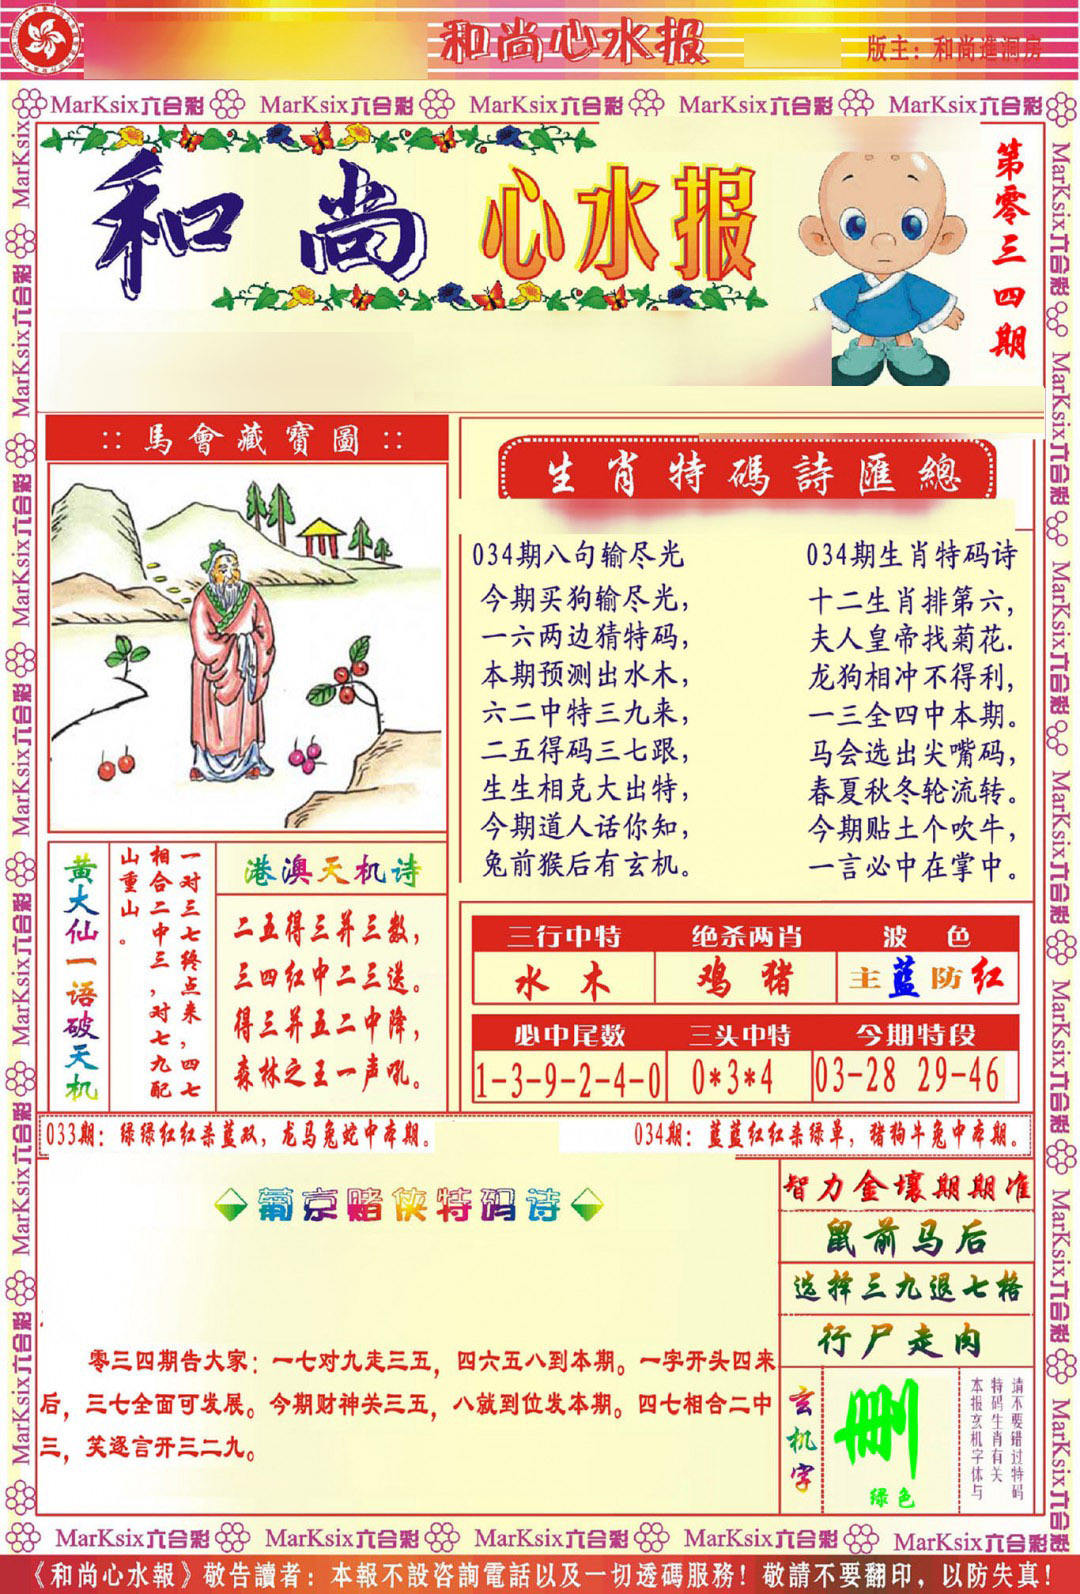 和尚心水报
版主：和尚進洞房
MarKsix六合彩 MarKsix六合彩 MarKsix六合彩 MarKsix六合彩 MarKsix六合彩
和尚心水报
第零三四期
:: 馬會藏寶圖 ::
生肖特碼詩匯總
034期八句输尽光
今期买狗输尽光，
一六两边猜特码，
本期预测出水木，
六二中特三九来，
二五得码三七跟，
生生相克大出特，
今期道人话你知，
兔前猴后有玄机。
034期生肖特码诗
十二生肖排第六，
夫人皇帝找菊花.
龙狗相冲不得利，
一三全四中本期。
马会选出尖嘴码，
春夏秋冬轮流转。
今期贴士个吹牛，
一言必中在掌中。
黄大仙一语破天机
一对三七终点来，四七
相合二中三，对七九配
山重山。
港澳天机诗
二五得三并三数，
三四红中二三送。
得三并五二中降，
森林之王一声吼。
三行中特 绝杀两肖 波色
水木 鸡猪 主蓝防红
必中尾数 三头中特 今期特段
1-3-9-2-4-0 0*3*4 03-28 29-46
033期：绿绿红红杀蓝双，龙马兔蛇中本期。
034期：蓝蓝红红杀绿单，猪狗牛兔中本期。
葡京赌侠特码诗
零三四期告大家：一七对九走三五，四六五八到本期。一字开头四来
后，三七全面可发展。今期财神关三五，八就到位发本期。四七相合二中
三，笑逐言开三二九。
智力金壤期期准
鼠前马后
选择三九退七格
行尸走肉
玄机字
删
绿色
请不要错过特码
特码生肖有关
本报玄机字体与
MarKsix六合彩 MarKsix六合彩 MarKsix六合彩 MarKsix六合彩 MarKsix六合彩
《和尚心水報》敬告讀者：本報不設咨詢電話以及一切透碼服務！敬請不要翻印，以防失真！